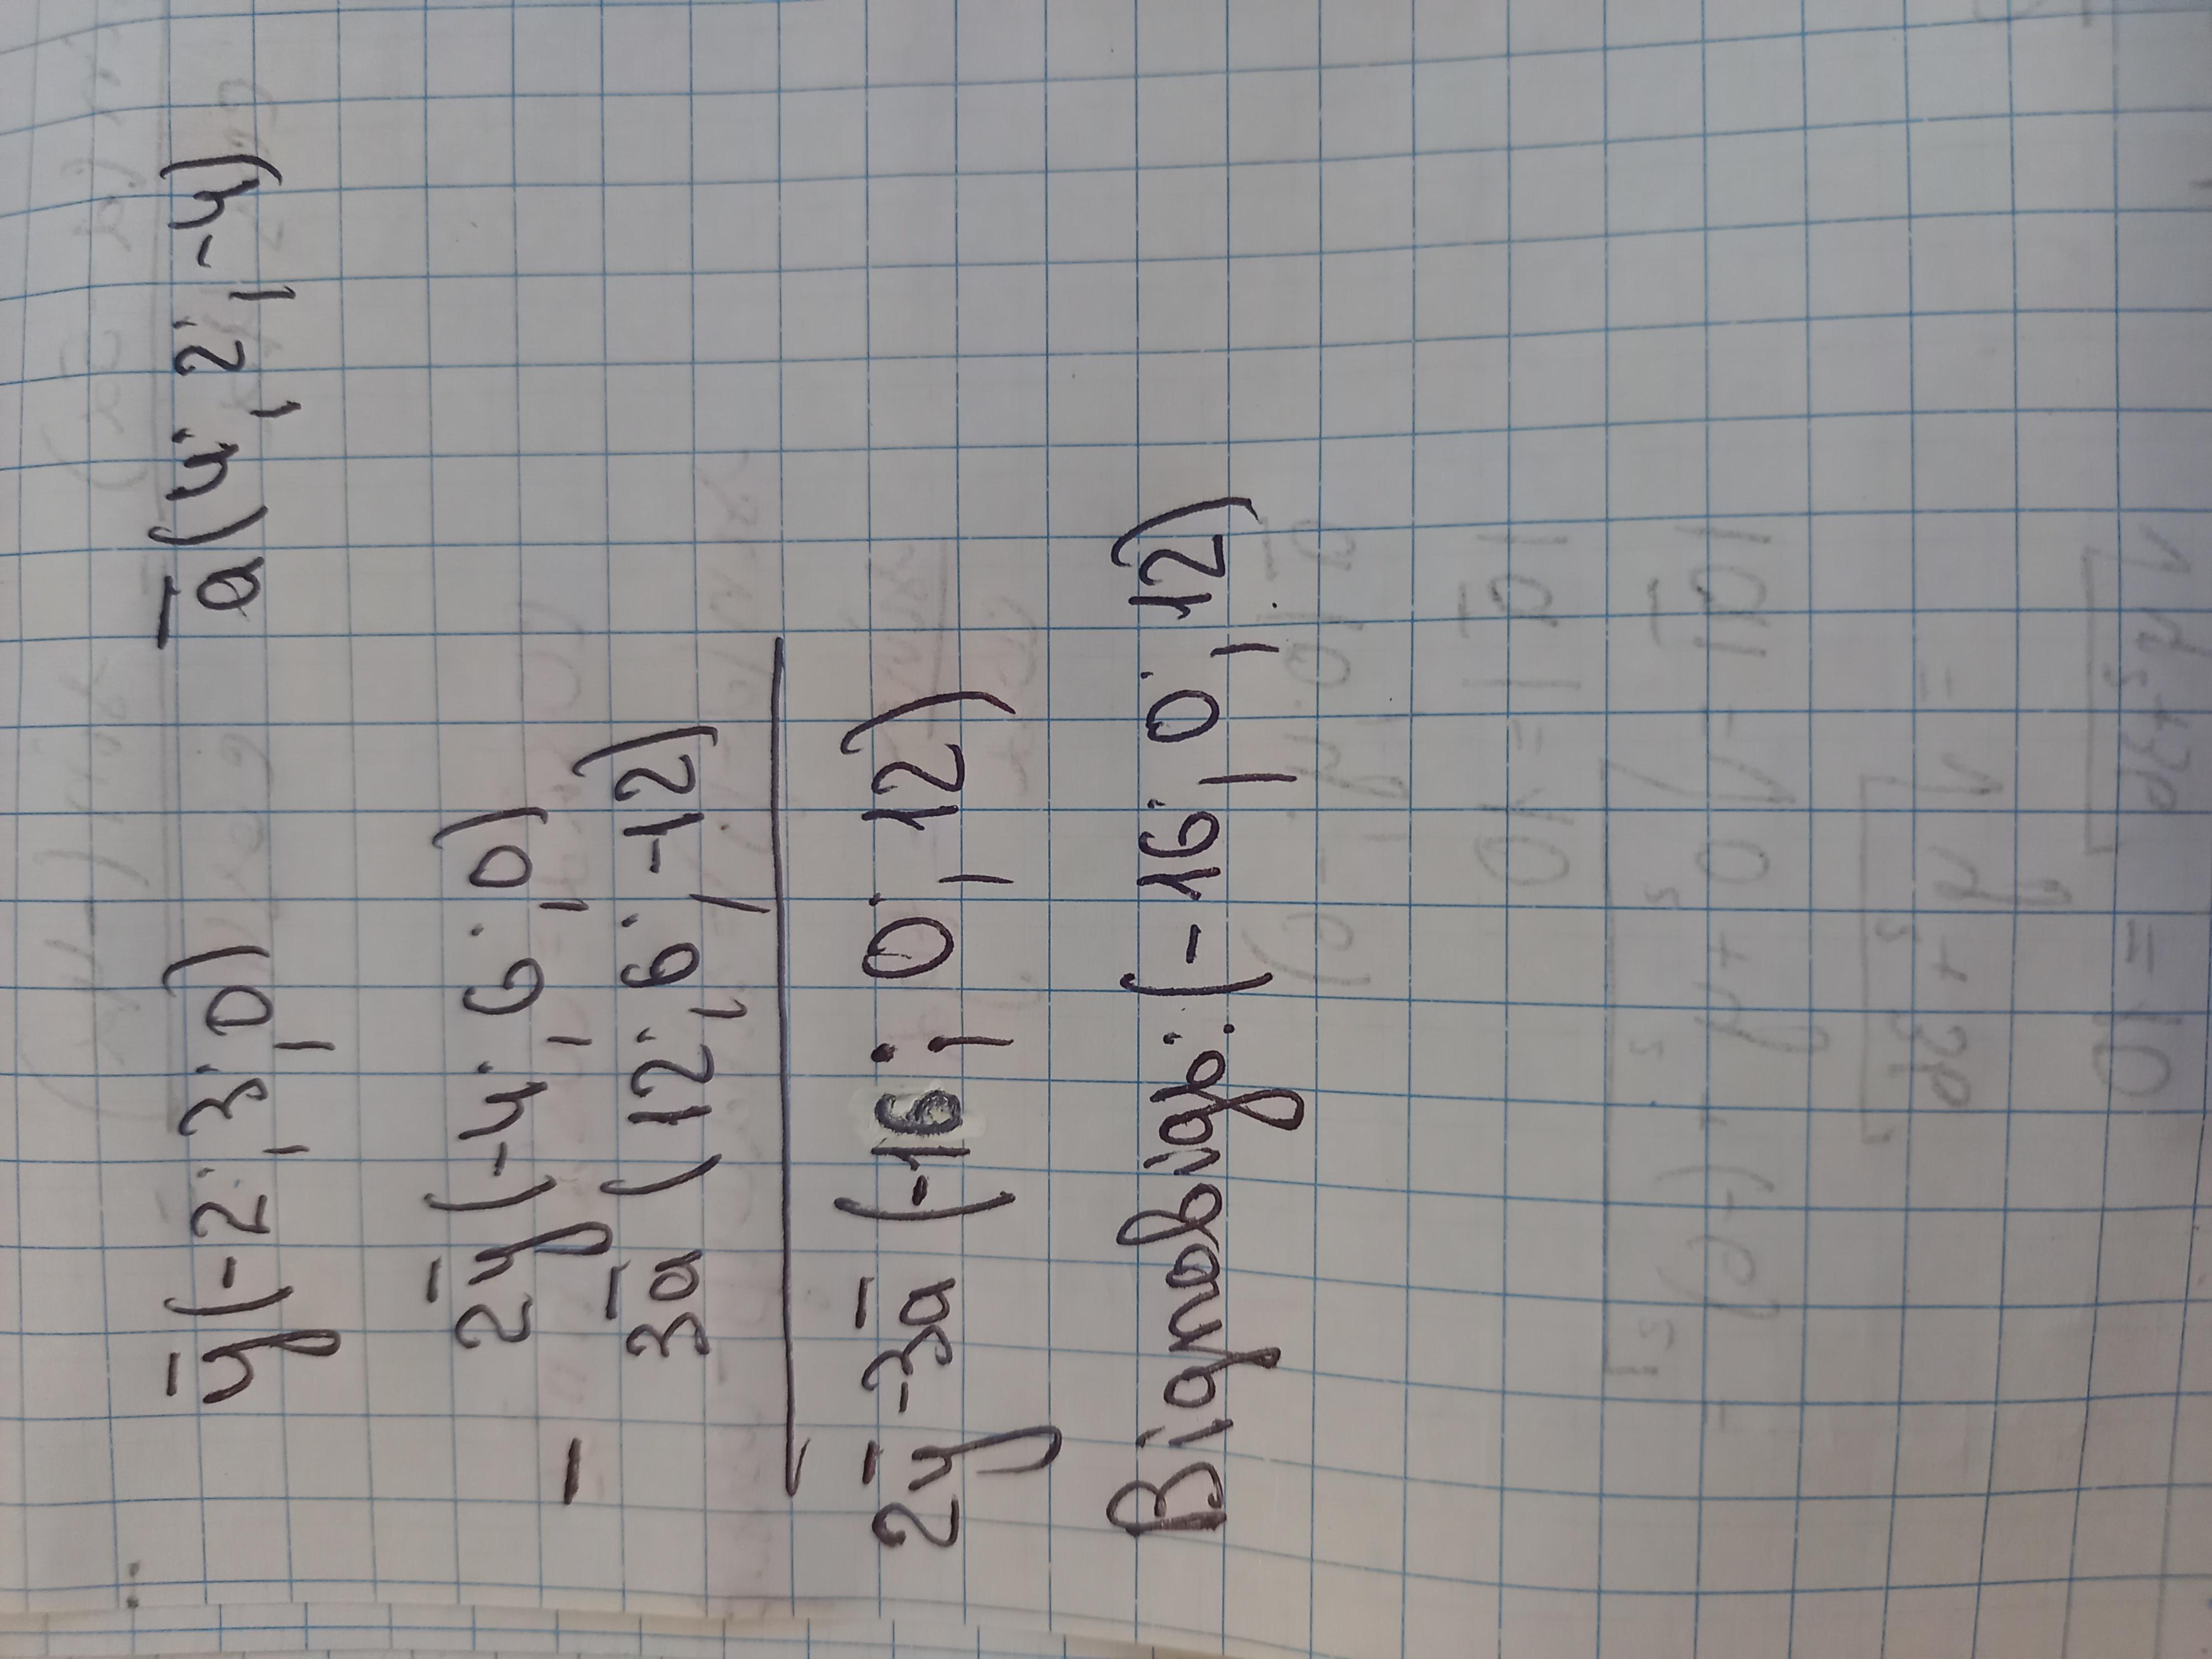 y̅(-2; 3; 0) a̅(4; 2; -4)
2y̅(-4; 6; 0)
-
3a̅(12; 6; -12)
2y̅-3a̅(-16; 0; 12)
Відповідь: (-16; 0; 12)